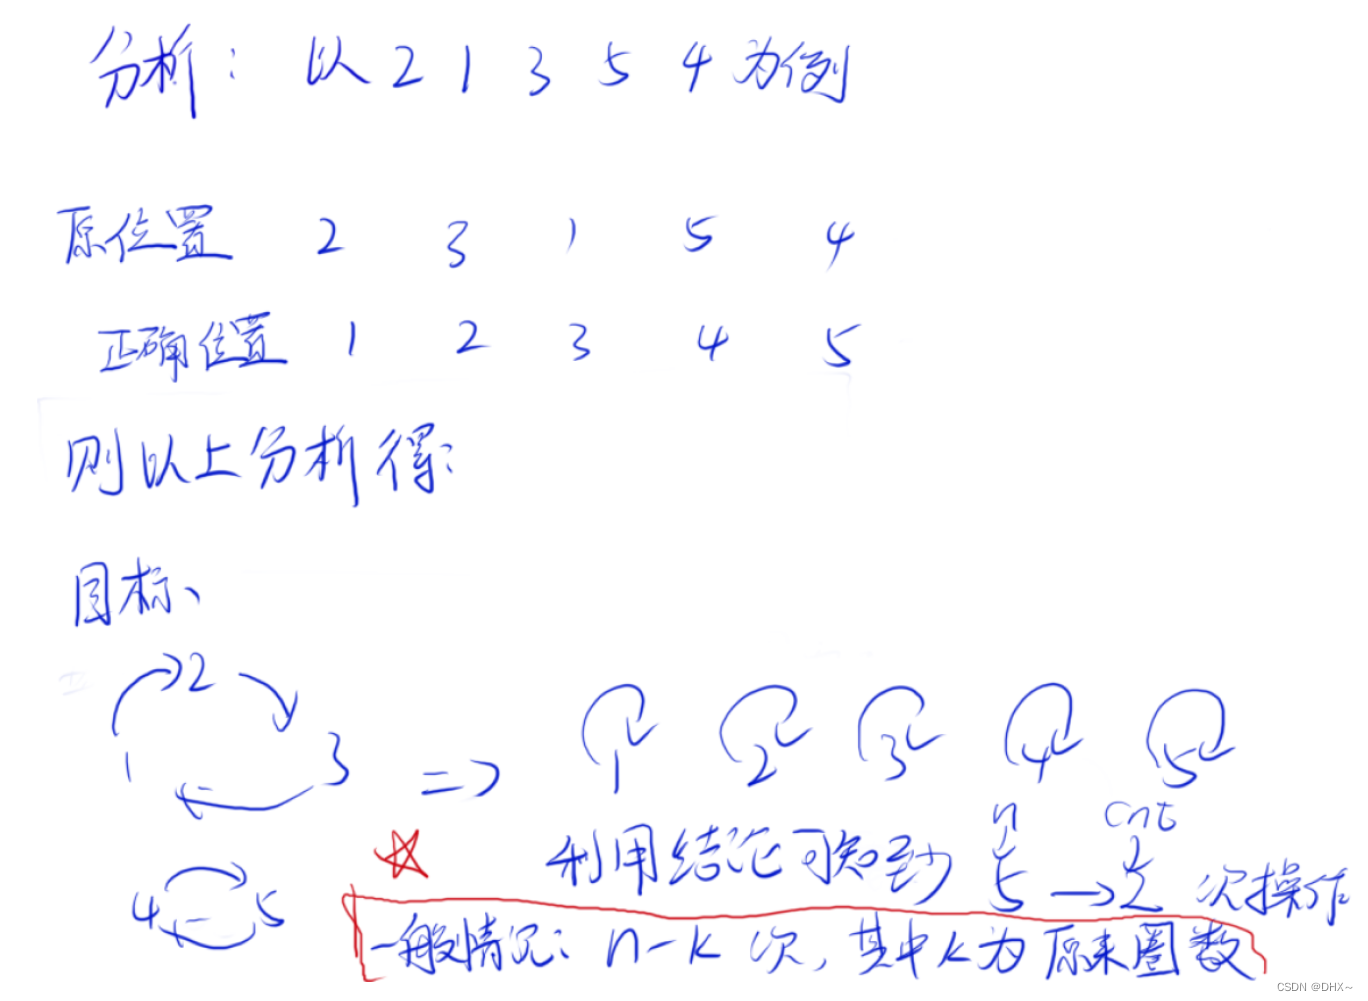 分析： 以 2 1 3 5 4 为例
原位置 2 3 1 5 4
正确位置 1 2 3 4 5
则以上分析得：
目标、
1 2 3 => 1 2 3 4 5
n cnt
4 5 利用结论可知到 5 → 2 次操作
一般情况： n-k 次，其中k为原来圈数
CSDN @DHX~